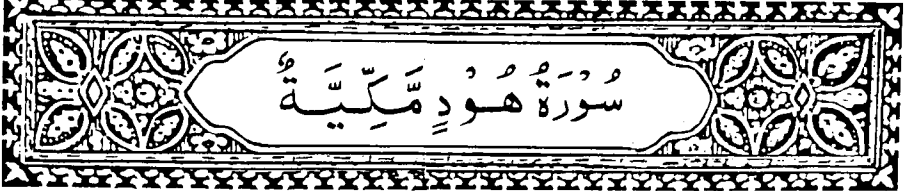 سُورَةُ هُودٍ مَّكِّيَّةٌ